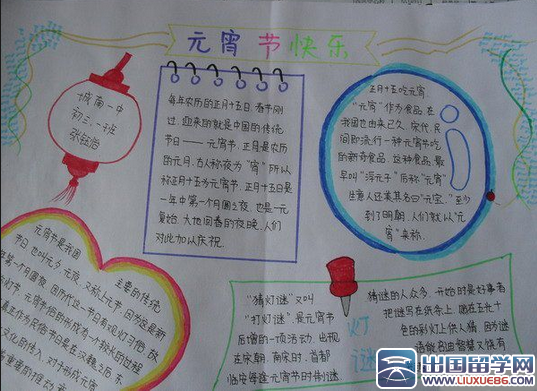 元宵节快乐
城南一中
初三.一班
每年农历的正月十五日.春节刚
过,迎来的就是中国的传统
节日——元宵节.正月是农历
的元月,古人称夜为“宵”所以
称正月十五为元宵节.正月十五日是
一年中第一个月圆之夜.也是一元
复始.大地回春的夜晚.人们
对此加以庆祝.
正月十五吃元宵
“元宵”作为食品.在
我国也由来已久.宋代.民
间即流行一种元宵节吃
的新奇食品.这种食品.最
早叫“浮元子”后称“元宵”
生意人还美其名曰“元宝.”至少
到了明朝.人们就以“元
宵”来称.
元宵节是我国
主要的传统
节日.也叫元夕.元夜.又称上元节.因为这是新
年第一个月圆夜.因历代这一节日有观灯习俗.故
灯节.元宵节俗的形成有一个较长的过程
文化的传入.对于形成元宵
“猜灯谜”又叫
“打灯谜”.是元宵节
后增的一项活动.出现
在宋朝.南宋时.首都
临安每逢元宵节时制谜
灯
谜
猜谜的人众多.开始时是好事者
把谜写在纸条上.贴在五光十
色的彩灯上供人猜.因为谜
语能启迪智慧又饶有
出国留学网
www.liuxue86.com